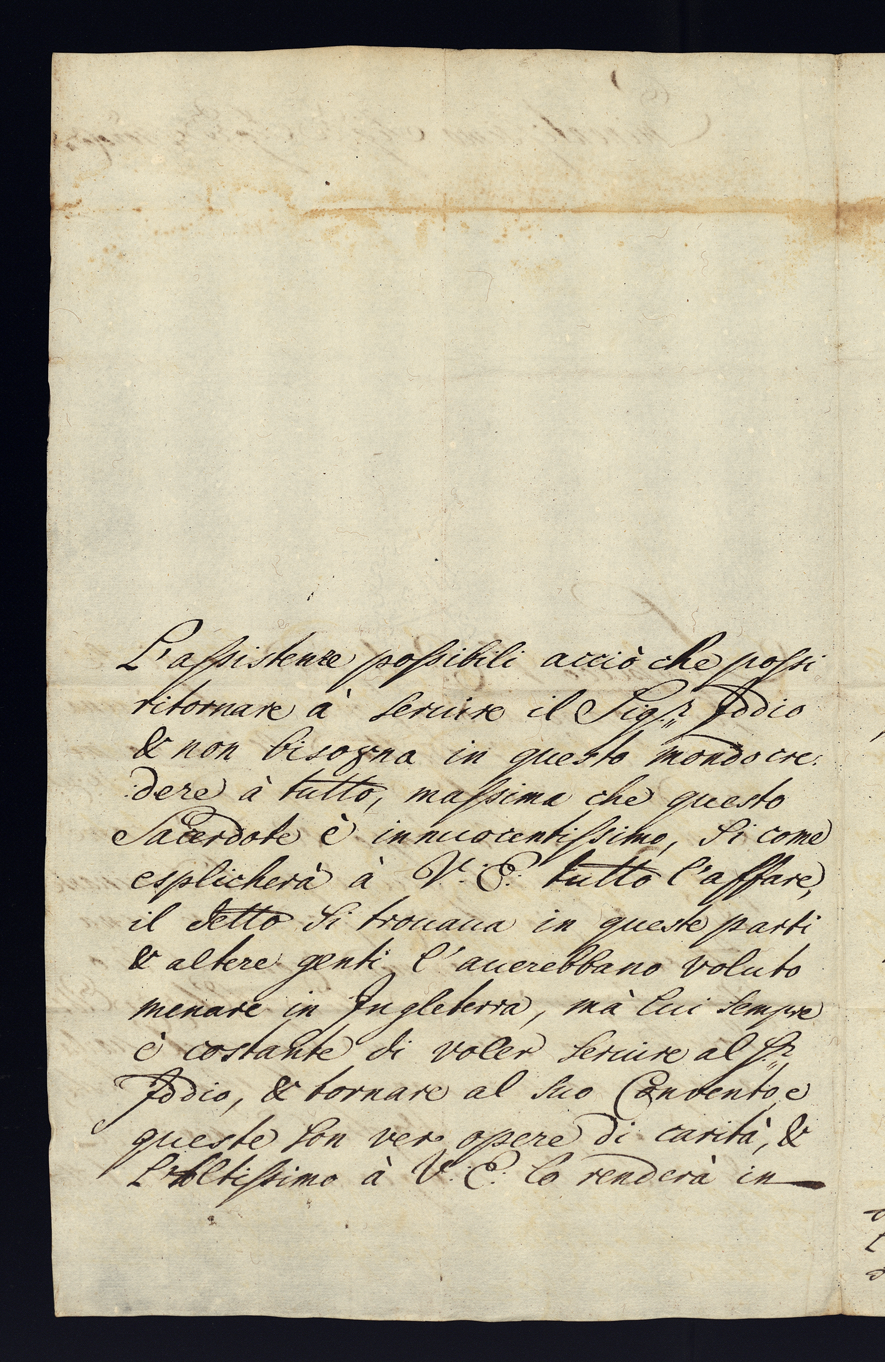 L'assistenze possibili acciò che possi
ritornare à seruire il Sig:r Iddio
& non bisogna in questo mondo cre:
:dere à tutto, massima che questo
Sacerdote è innuocentissimo, Si come
esplicherà à V: E: tutto l'affare,
il detto si trouaua in queste parti
& altere genti l'auerebbano voluto
menare in Ingleterra, mà lui sempre
è costante di voler seruire al S:r
Iddio, & tornare al suo Convento e
queste son vere opere di carità, &
L'Altissimo à V: E: lo renderà in